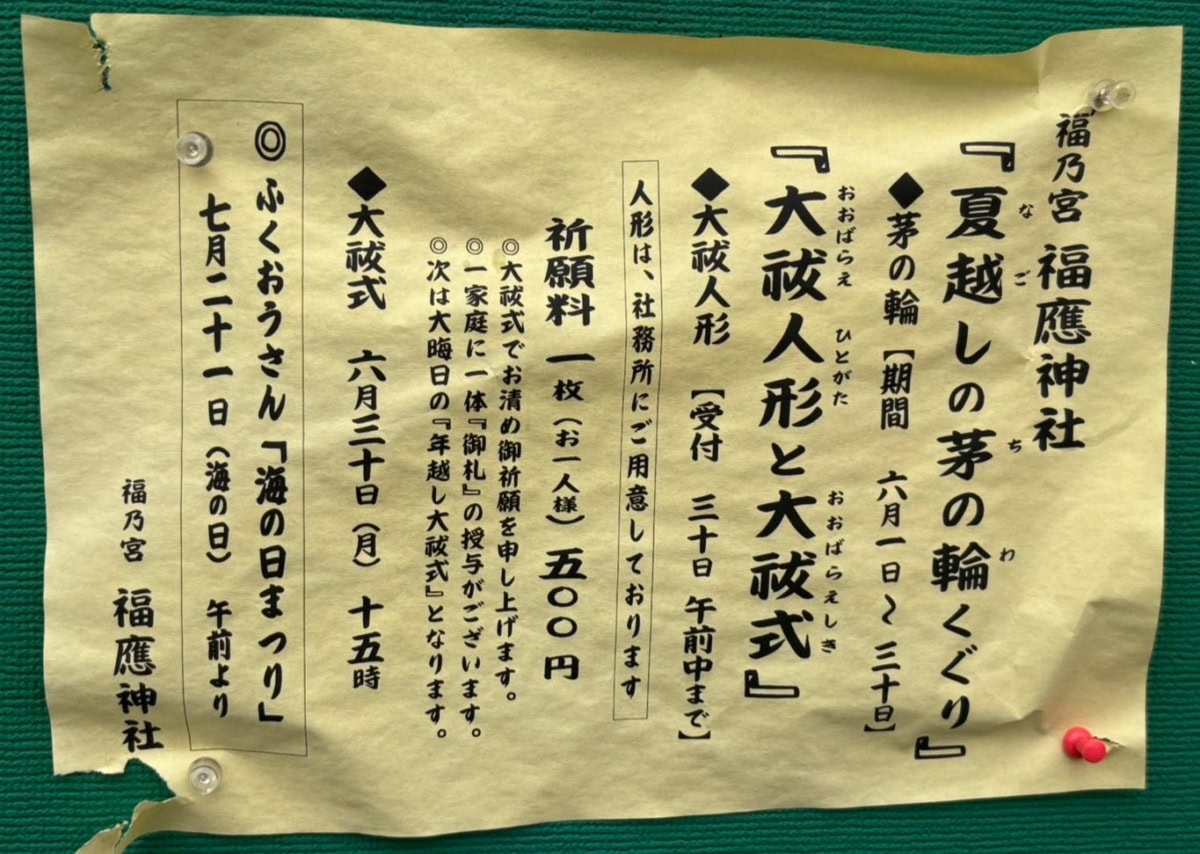 福乃宮 福應神社
『夏越しの茅の輪くぐり』
なご ち わ
◆茅の輪【期間 六月一日~三十日】
『大祓人形と大祓式』
おおばらえ ひとがた おおばらえしき
◆大祓人形 【受付 三十日 午前中まで】
人形は、社務所にご用意しております
祈願料 一枚(お一人様)五〇〇円
◎大祓式でお清め御祈願を申し上げます。
◎一家庭に一体『御札』の授与がございます。
◎次は大晦日の『年越し大祓式』となります。
◆大祓式 六月三十日(月) 十五時
◎ふくおうさん「海の日まつり」
七月二十一日(海の日) 午前より
福乃宮 福應神社